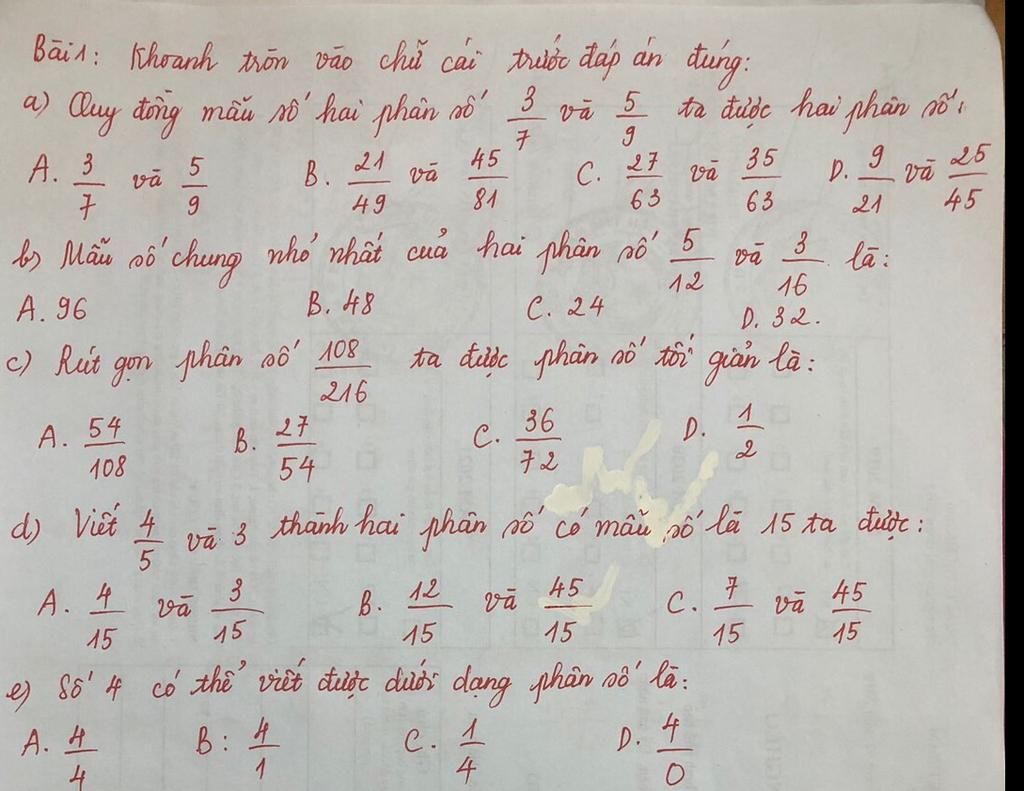 Bài 1: Khoanh tròn vào chữ cái trước đáp án đúng:
a) Quy đồng mẫu số hai phân số 3/7 và 5/9 ta được hai phân số:
A. 3/7 và 5/9 B. 21/49 và 45/81 C. 27/63 và 35/63 D. 9/21 và 25/45
b) Mẫu số chung nhỏ nhất của hai phân số 5/12 và 3/16 là:
A. 96 B. 48 C. 24 D. 32.
c) Rút gọn phân số 108/216 ta được phân số tối giản là:
A. 54/108 B. 27/54 C. 36/72 D. 1/2
d) Viết 4/5 và 3 thành hai phân số có mẫu số là 15 ta được:
A. 4/15 và 3/15 B. 12/15 và 45/15 C. 7/15 và 45/15
e) Số 4 có thể viết được dưới dạng phân số là:
A. 4/4 B: 4/1 C. 1/4 D. 4/0